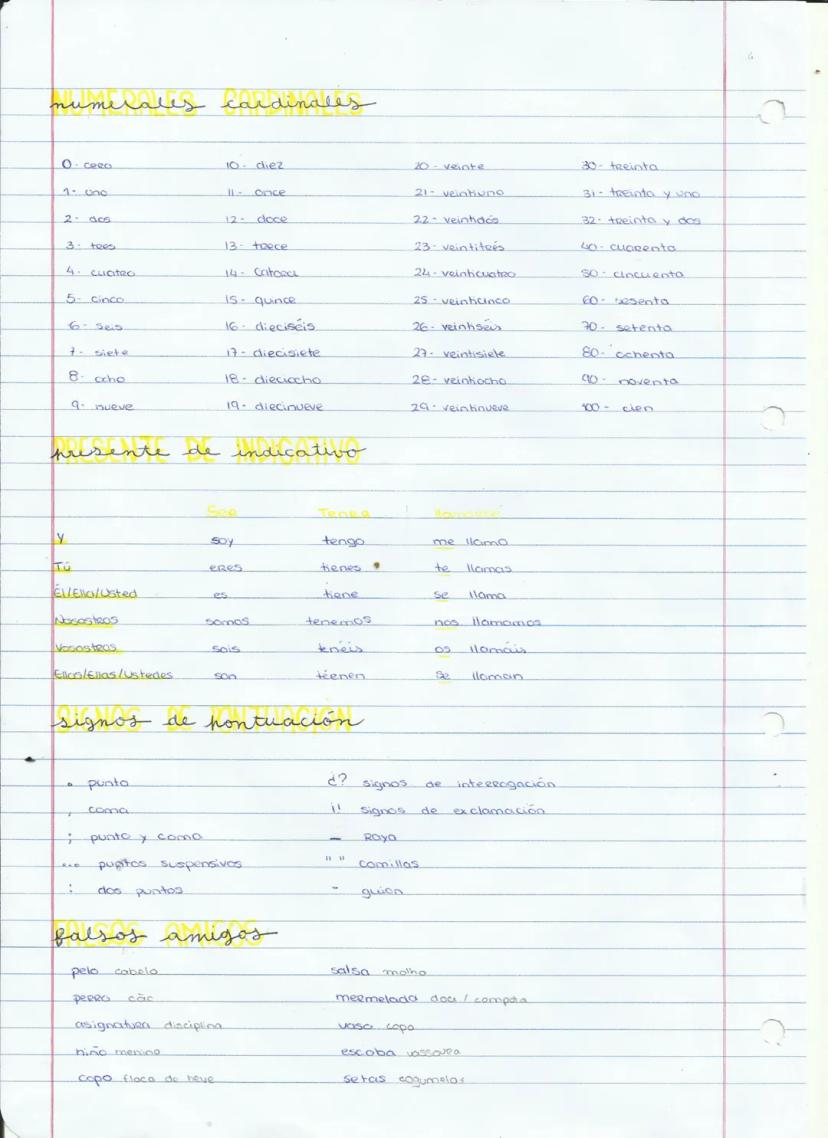 numerales cardinales
0- cero 10- diez 20- veinte 30- treinta
1- uno 11- once 21- veintiuno 31- treinta y uno
2- dos 12- doce 22- veintidós 32- treinta y dos
3- tres 13- trece 23- veintitrés 40- cuarenta
4- cuatro 14- catorce 24- veinticuatro 50- cincuenta
5- cinco 15- quince 25- veinticinco 60- sesenta
6- seis 16- dieciséis 26- veintiséis 70- setenta
7- siete 17- diecisiete 27- veintisiete 80- ochenta
8- ocho 18- dieciocho 28- veintiocho 90- noventa
9- nueve 19- diecinueve 29- veintinueve 100- cien
presente de indicativo
Ser Tener llamarse
Y soy tengo me llamo
Tú eres tienes te llamas
Él/Ella/Usted es tiene se llama
Nosostros somos tenemos nos llamamos
Vosostros sois tenéis os llamáis
Ellos/Ellas/Ustedes son tienen se llaman
signos de pontuación
. punto ¿? signos de interrogación
, coma ¡! signos de exclamación
; punto y coma — Raya
... puntos suspensivos " " comillas
: dos puntos - guion
falsos amigos
pelo cabelo salsa molho
perro cão mermelada doce / compota
asignatura disciplina vaso copo
niño menino escoba vassoura
copo floco de neve setas cogumelos